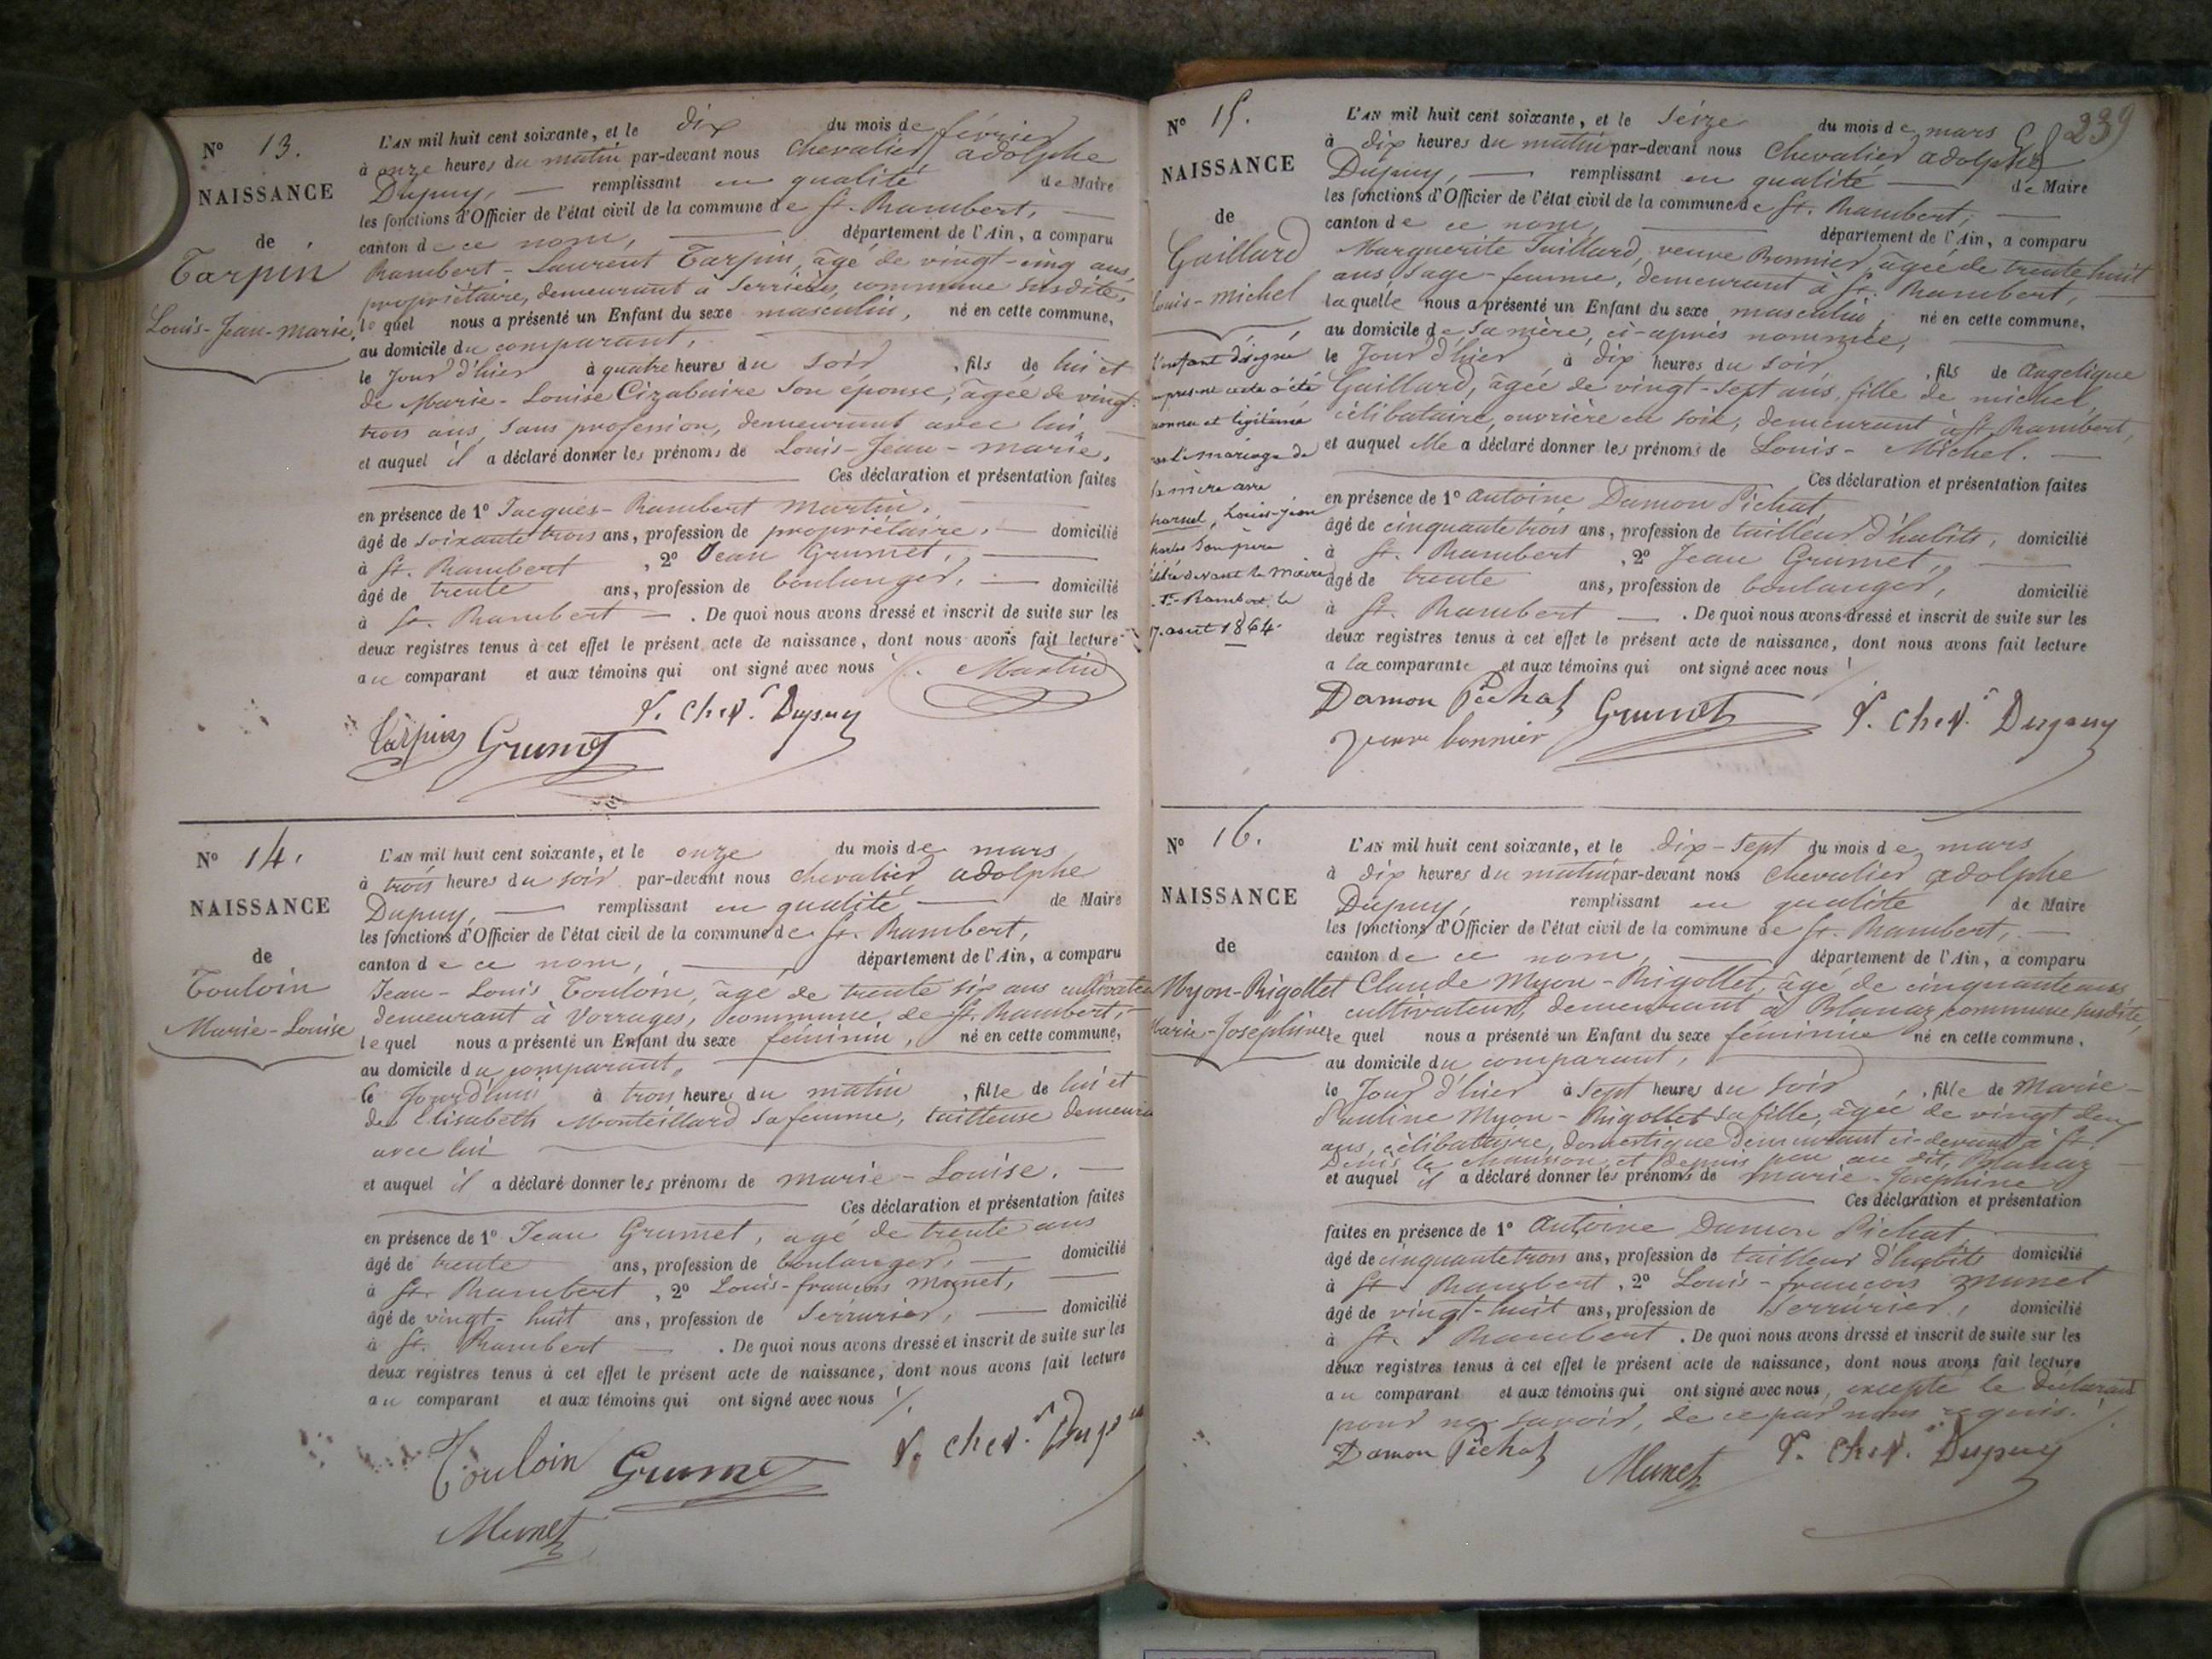 N° 13.
NAISSANCE
de
Tarpin
Louis-Jean-Marie.
L'AN mil huit cent soixante, et le dix du mois de février
à onze heures du matin par-devant nous Chevalier, adolphe
Dupuy, — remplissant en qualité de Maire
les fonctions d'Officier de l'état civil de la commune de St. Rambert,
canton de ce nom, département de l'Ain, a comparu
Rambert-Laurent Tarpin, âgé de vingt-cinq ans,
propriétaire, demeurant à Serrières, commune susdite,
lequel nous a présenté un Enfant du sexe masculin, né en cette commune,
au domicile du comparant,
le Jour d'hier à quatre heures du soir, fils de lui et
de Marie-Louise Cizabuire son épouse, âgée de vingt-
trois ans, sans profession, demeurant avec lui
et auquel il a déclaré donner les prénoms de Louis-Jean-Marie.
Ces déclaration et présentation faites
en présence de 1° Jacques-Rambert Martin,
âgé de soixante trois ans, profession de propriétaire, domicilié
à St. Rambert, 2° Jean Grumet,
âgé de trente ans, profession de boulanger, domicilié
à St. Rambert — . De quoi nous avons dressé et inscrit de suite sur les
deux registres tenus à cet effet le présent acte de naissance, dont nous avons fait lecture
au comparant et aux témoins qui ont signé avec nous ./. Martin
Tarpin Grumet Chev. Dupuy
N° 14.
NAISSANCE
de
Touloin
Marie-Louise
L'AN mil huit cent soixante, et le onze du mois de mars
à trois heures du soir par-devant nous Chevalier adolphe
Dupuy, — remplissant en qualité — de Maire
les fonctions d'Officier de l'état civil de la commune de St. Rambert,
canton de ce nom, département de l'Ain, a comparu
Jean-Louis Touloin, âgé de trente six ans cultivateur
demeurant à Vorrages, commune de St. Rambert,
lequel nous a présenté un Enfant du sexe féminin, né en cette commune,
au domicile du comparant,
le Jourd'hui à trois heures du matin, fille de lui et
de Elisabeth Monteillard sa femme, tailleuse demeurant
avec lui
et auquel il a déclaré donner les prénoms de Marie-Louise.
Ces déclaration et présentation faites
en présence de 1° Jean Grumet, âgé de trente ans
âgé de trente ans, profession de boulanger, domicilié
à St. Rambert, 2° Louis-françois Munet,
âgé de vingt-huit ans, profession de Serrurier, domicilié
à St. Rambert — . De quoi nous avons dressé et inscrit de suite sur les
deux registres tenus à cet effet le présent acte de naissance, dont nous avons fait lecture
au comparant et aux témoins qui ont signé avec nous ./.
Touloin Grumet Chev. Dupuy
Munet
239
N° 15.
NAISSANCE
de
Gaillard
Louis-Michel
l'enfant désigné
present acte a été
reconnu et légitimé
par le mariage de
sa mère avec
Louis-Jean
Charles son père
célébré devant le Maire
St-Rambert le
17. aout 1864.
L'AN mil huit cent soixante, et le Seize du mois de mars
à dix heures du matin par-devant nous Chevalier adolphe
Dupuy, — remplissant en qualité — de Maire
les fonctions d'Officier de l'état civil de la commune de St. Rambert,
canton de ce nom, département de l'Ain, a comparu
Marguerite Juillard, veuve Bonnier, âgée de trente huit
ans, sage-femme, demeurant à St. Rambert,
laquelle nous a présenté un Enfant du sexe masculin, né en cette commune,
au domicile de sa mère, ci-après nommée,
le Jour d'hier à dix heures du soir, fils de angelique
Gaillard, âgée de vingt-sept ans, fille de michel,
célibataire, ouvrière en soie, demeurant à St. Rambert,
et auquel elle a déclaré donner les prénoms de Louis-Michel.
Ces déclaration et présentation faites
en présence de 1° antoine Damon Pichat
âgé de cinquante trois ans, profession de tailleur d'habits, domicilié
à St. Rambert, 2° Jean Grumet,
âgé de trente ans, profession de boulanger, domicilié
à St. Rambert — . De quoi nous avons dressé et inscrit de suite sur les
deux registres tenus à cet effet le présent acte de naissance, dont nous avons fait lecture
a la comparante et aux témoins qui ont signé avec nous
Damon Pichat Grumet Chev. Dupuy
veuve bonnier
N° 16.
NAISSANCE
de
Myon-Rigollet
Marie-Josephine
L'AN mil huit cent soixante, et le dix-sept du mois de mars
à dix heures du matin par-devant nous Chevalier adolphe
Dupuy, remplissant en qualité de Maire
les fonctions d'Officier de l'état civil de la commune de St. Rambert,
canton de ce nom, département de l'Ain, a comparu
Claude Myon-Rigollet, âgé de cinquante ans
cultivateur, demeurant à Blanaz, commune susdite,
lequel nous a présenté un Enfant du sexe féminin né en cette commune,
au domicile du comparant,
le Jour d'hier à sept heures du soir, fille de Marie-
Pauline Myon-Rigollet sa fille, âgée de vingt deux
ans, célibataire, domestique demeurant ci-devant à St.
Denis le Chausson, et depuis peu au dit, Blanaz
et auquel il a déclaré donner les prénoms de Marie-Josephine
Ces déclaration et présentation
faites en présence de 1° Antoine Damon Pichat
âgé de cinquante trois ans, profession de tailleur d'habits domicilié
à St. Rambert, 2° Louis-françois Munet
âgé de vingt-huit ans, profession de Serrurier, domicilié
à St. Rambert. De quoi nous avons dressé et inscrit de suite sur les
deux registres tenus à cet effet le présent acte de naissance, dont nous avons fait lecture
au comparant et aux témoins qui ont signé avec nous, excepté le déclarant
pour ne savoir, de ce par nous requis. ./.
Damon Pichat Munet Chev. Dupuy